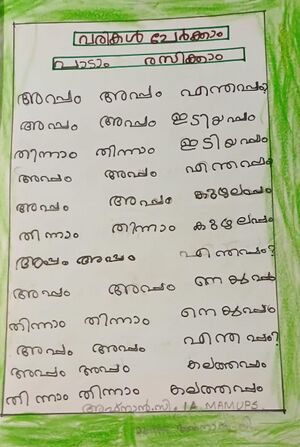 വരികൾ ചേർക്കാം
പാടാം രസിക്കാം
അപ്പം അപ്പം എന്തപ്പം?
അപ്പം അപ്പം ഇടിയപ്പം
തിന്നാം തിന്നാം ഇടിയപ്പം
അപ്പം അപ്പം എന്തപ്പം
അപ്പം അപ്പം കുഴലപ്പം
തിന്നാം തിന്നാം കുഴലപ്പം
അപ്പം അപ്പം എന്തപ്പം?
അപ്പം അപ്പം നെയ്യപ്പം
തിന്നാം തിന്നാം നെയ്യപ്പം
അപ്പം അപ്പം എന്തപ്പം?
അപ്പം അപ്പം കലത്തപ്പം
തിന്നാം തിന്നാം കലത്തപ്പം
അഫ്നാൻ.സി. 1A MAMUPS